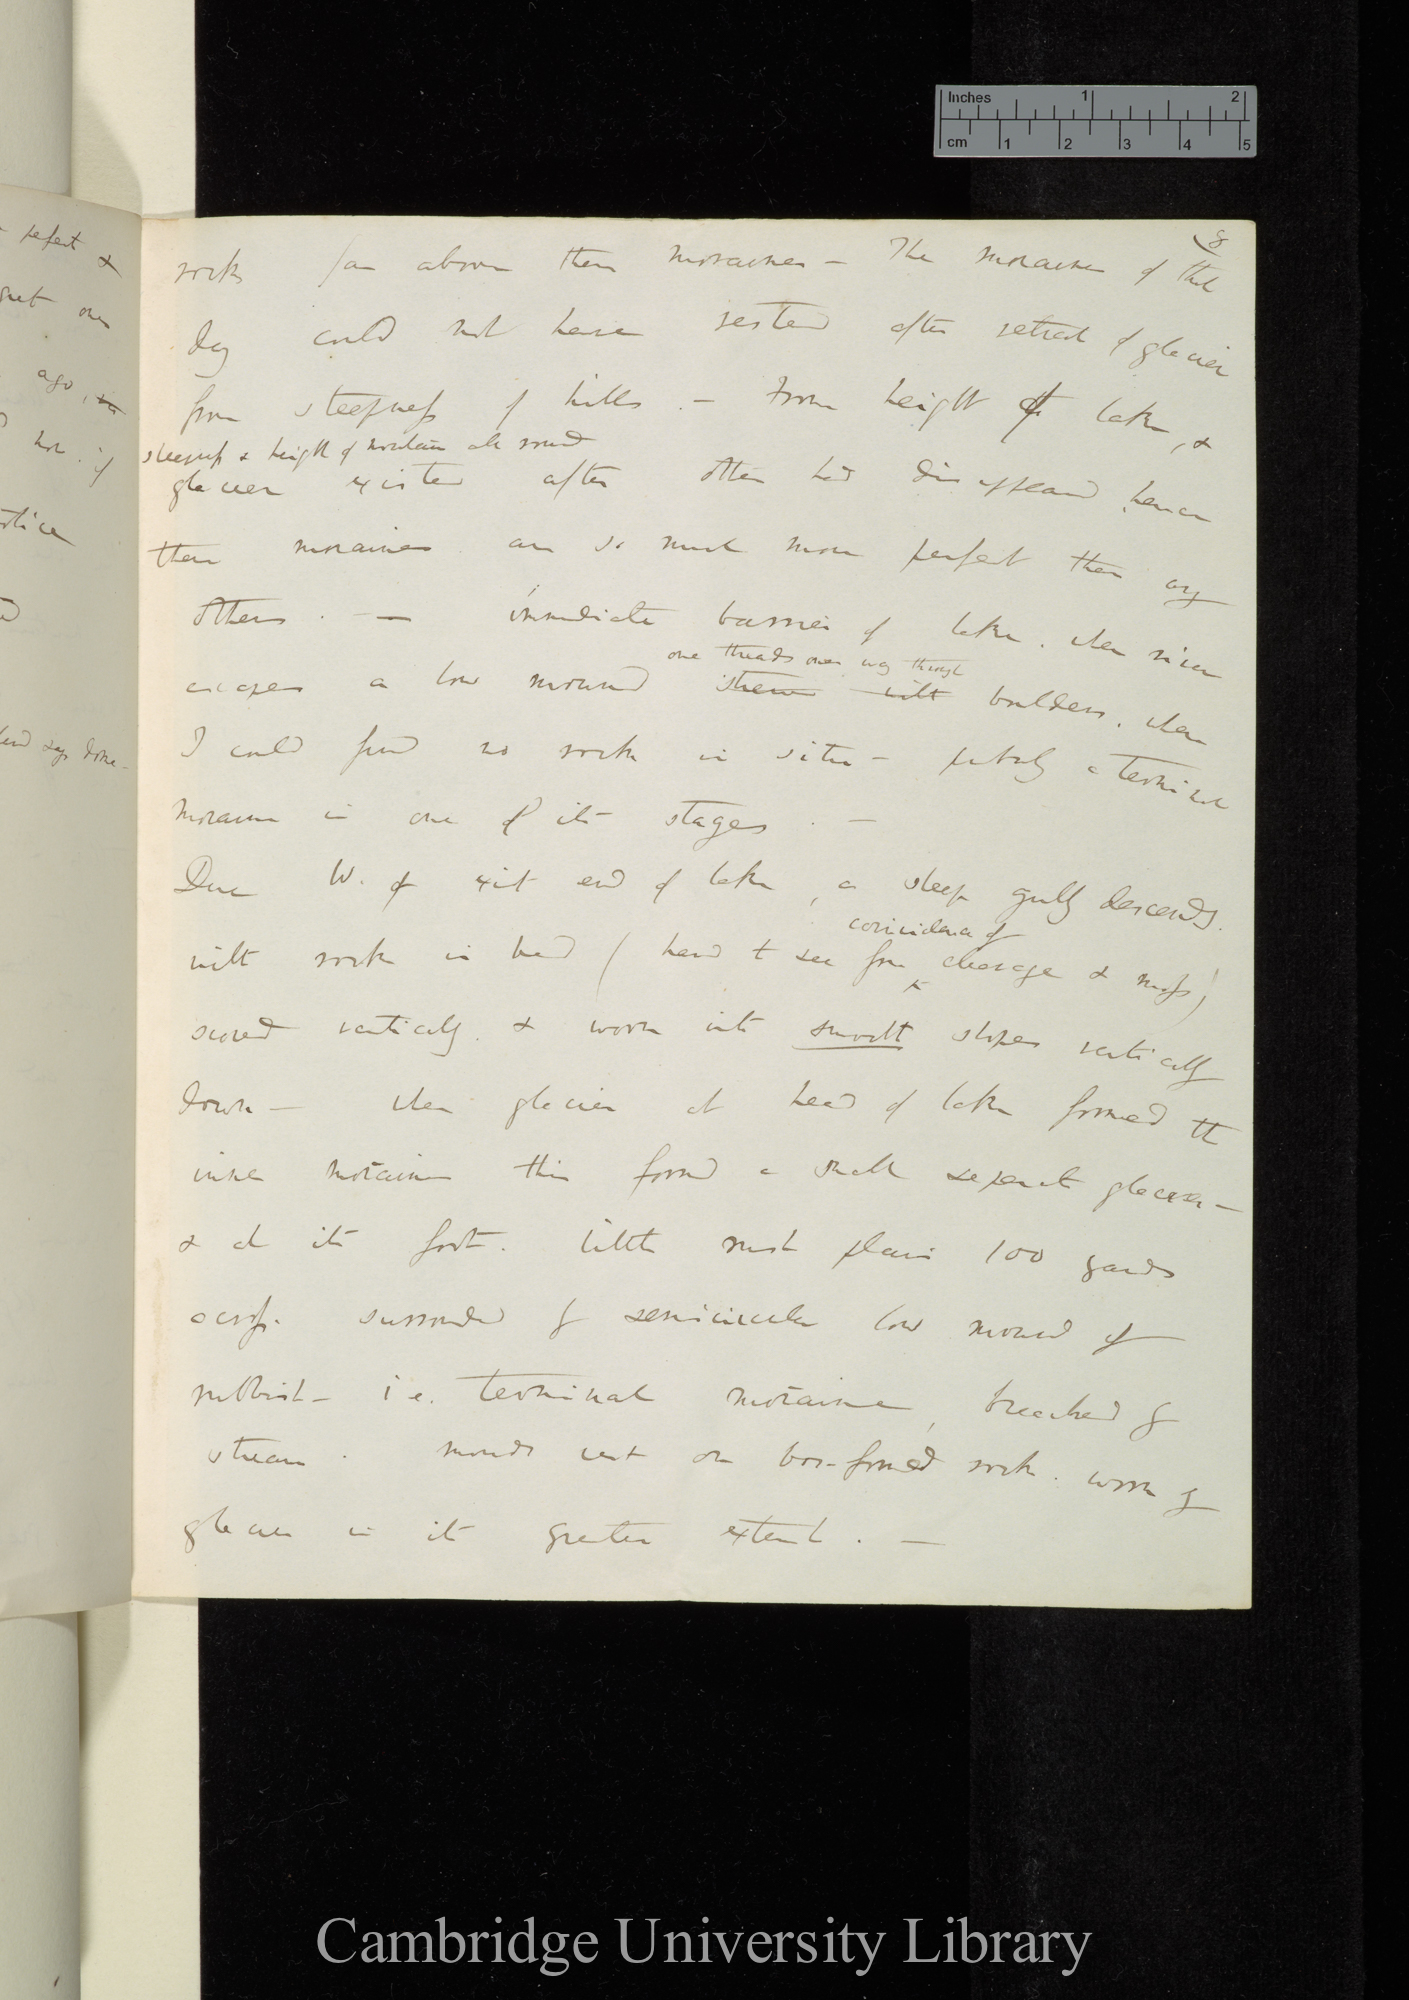 8
rocks far above these moraines — The moraines of that
day could not have rested after retreat of glacier
from steepness of hills. — From height of lake, &
steepness & height of mountain all round
glacier existed after other had disappeared, hence
these moraines are so much more perfect than any
others. — immediate barrier of lake. when river
one threads ones way through
escapes a low mound strewn with boulders, when
I could find no rock in situ — probably a terminal
moraine in one of its stages. —
Due W. of exit end of lake, a steep gully descends.
coincidence of
with rock in bed (hard to see from cleavage & moss)
scored vertically. & worn into smooth slopes vertically
down — when glacier at head of lake formed the
inner moraine this formed a small separate glacier —
& at its foot. little marsh plain 100 yards
across. surrounded by semicircular low mound of
rubbish — i.e. terminal moraine, breached by
stream. mounds rest on boss-formed rock. worn by
glacier in its greater extent. —
perfect &
great ones
ago,
if
notice
says done —
Inches 1 2
cm 1 2 3 4 5
Cambridge University Library